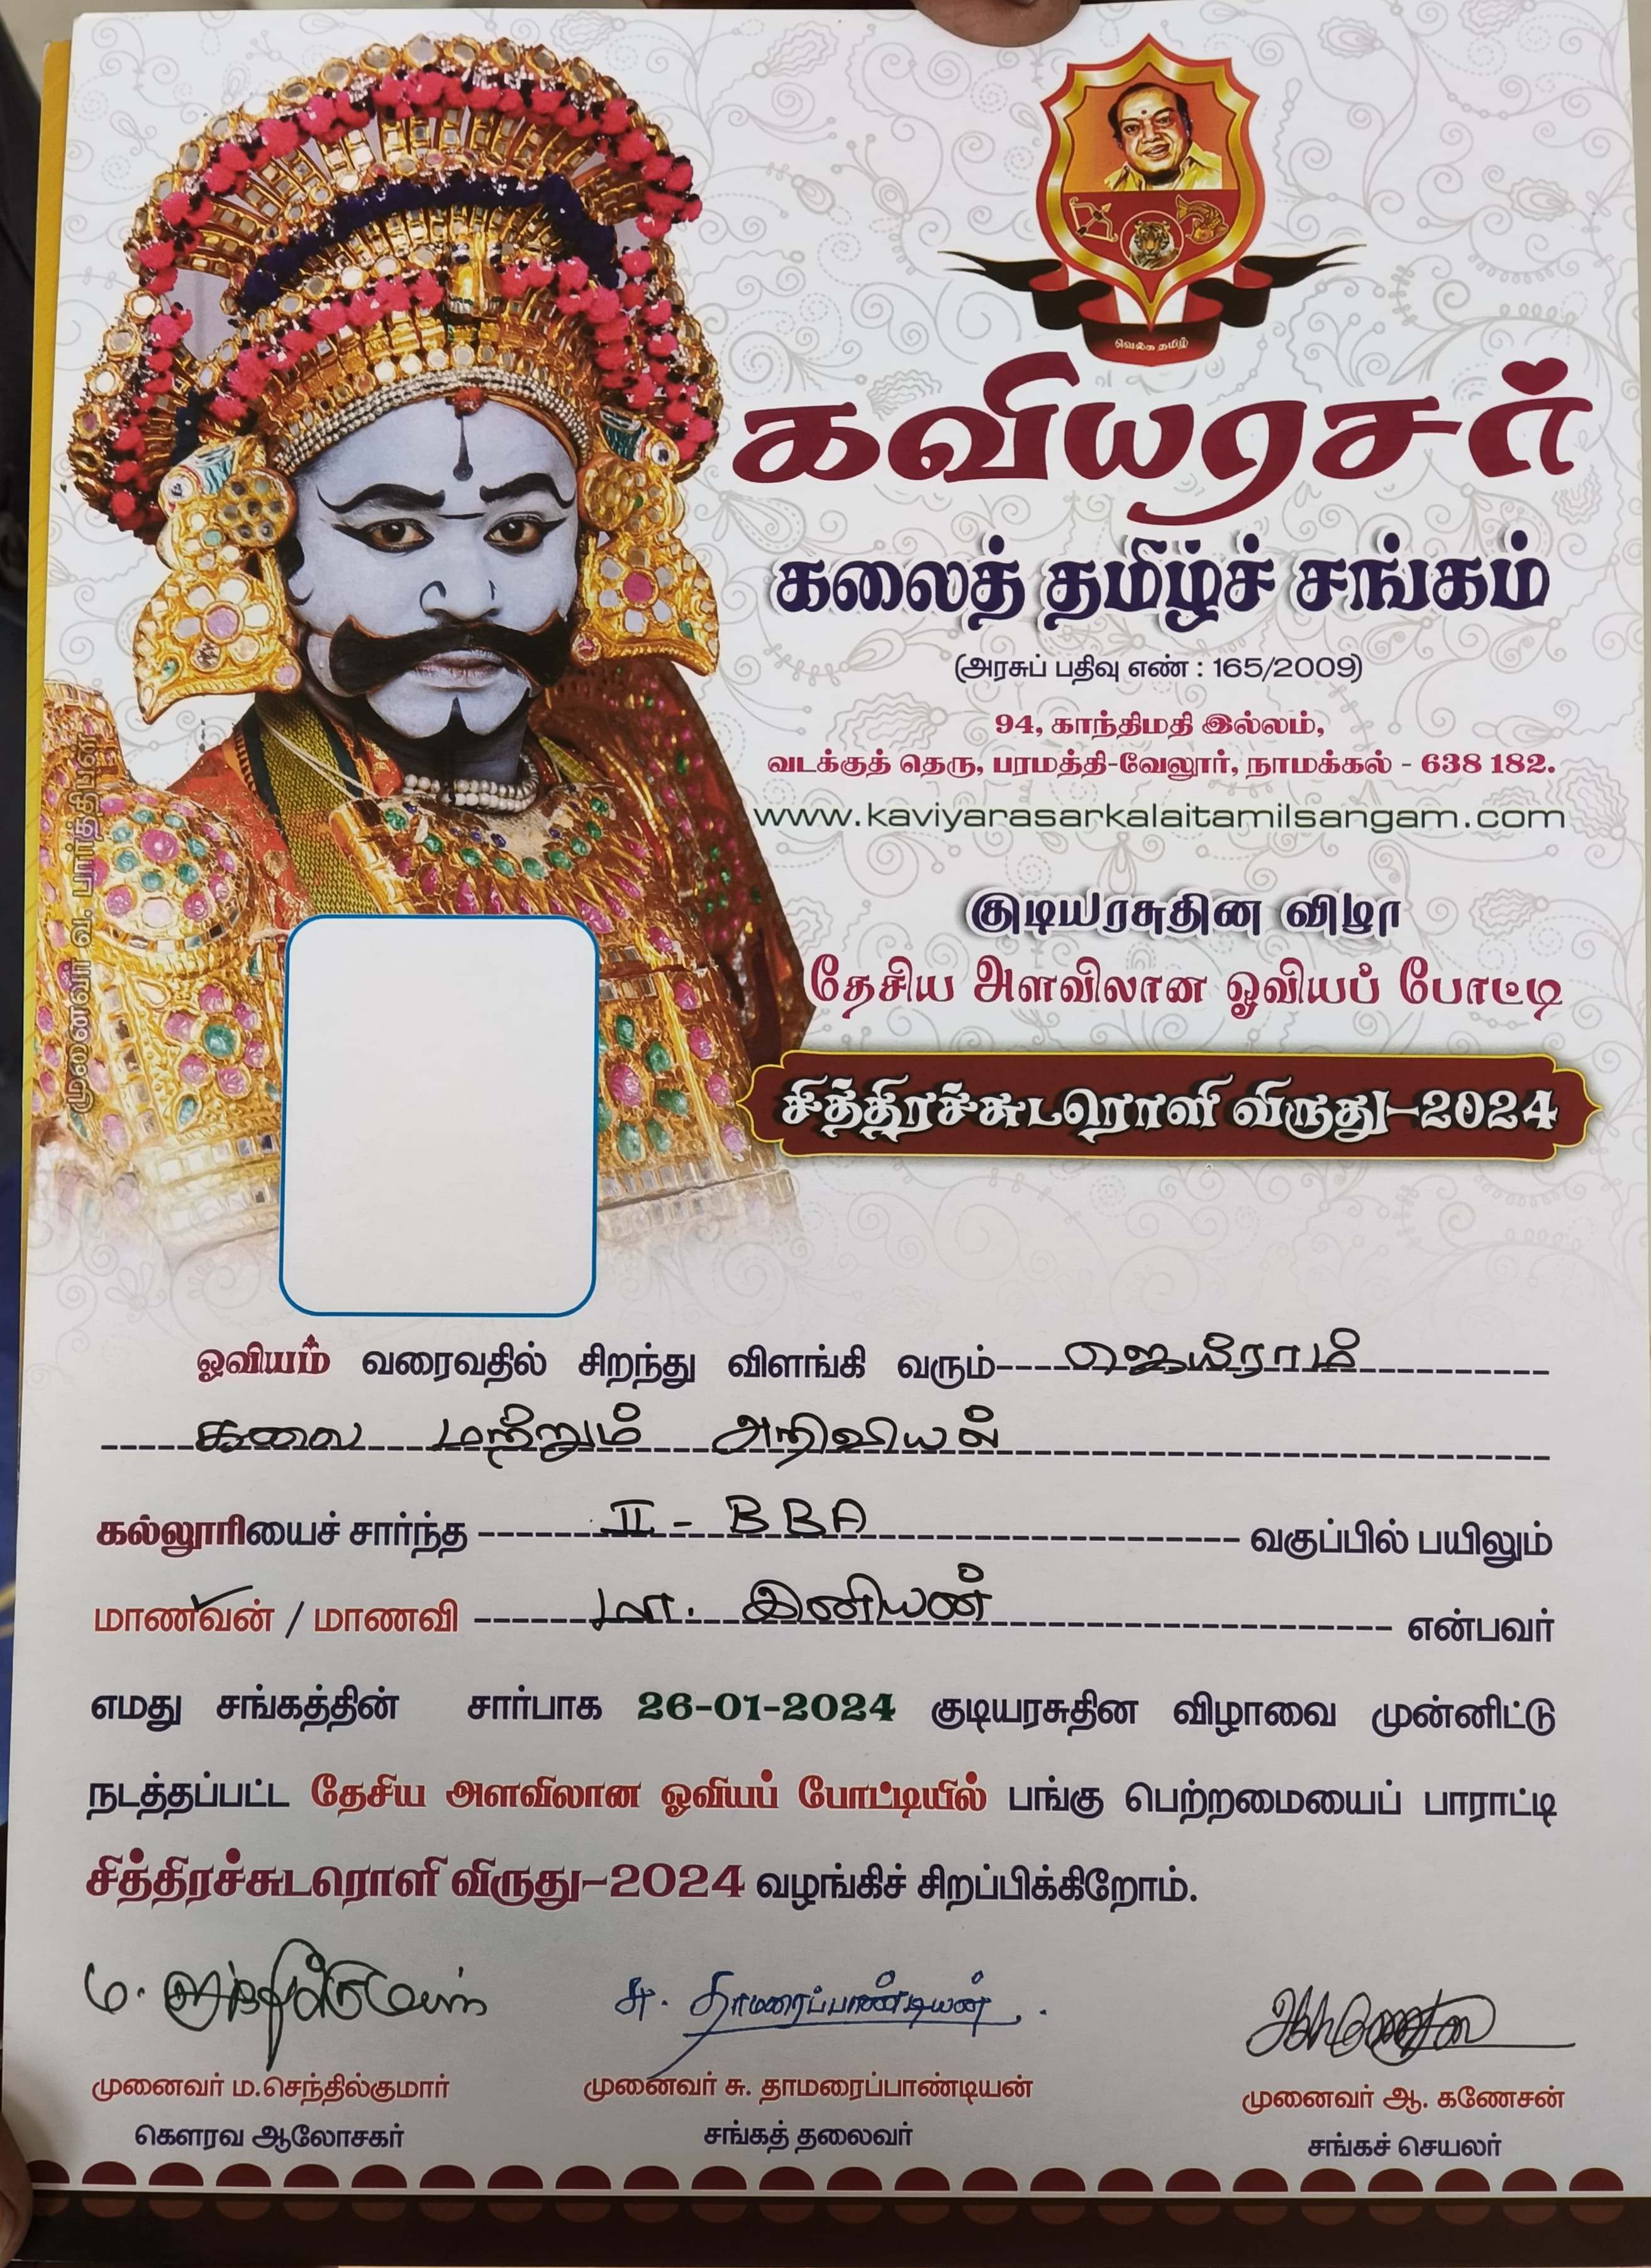 வெல்க தமிழ்
கவியரசர்
கலைத் தமிழ்ச் சங்கம்
(அரசுப் பதிவு எண் : 165/2009)
94, காந்திமதி இல்லம்,
வடக்குத் தெரு, பரமத்தி-வேலூர், நாமக்கல் - 638 182.
www.kaviyarasarkalaitamilsangam.com
குடியரசுதின விழா
தேசிய அளவிலான ஓவியப் போட்டி
சித்திரச்சுடரொளி விருது-2024
முனைவர் வ. பார்த்திபன்
ஓவியம் வரைவதில் சிறந்து விளங்கி வரும் ஜெயிராம்
கலை மற்றும் அறிவியல்
கல்லூரியைச் சார்ந்த II - BBA வகுப்பில் பயிலும்
மாணவன் / மாணவி மா. இனியன் என்பவர்
எமது சங்கத்தின் சார்பாக 26-01-2024 குடியரசுதின விழாவை முன்னிட்டு
நடத்தப்பட்ட தேசிய அளவிலான ஓவியப் போட்டியில் பங்கு பெற்றமையைப் பாராட்டி
சித்திரச்சுடரொளி விருது-2024 வழங்கிச் சிறப்பிக்கிறோம்.
சு. தாமரைப்பாண்டியன்
முனைவர் ம.செந்தில்குமார் முனைவர் சு. தாமரைப்பாண்டியன் முனைவர் ஆ. கணேசன்
கௌரவ ஆலோசகர் சங்கத் தலைவர் சங்கச் செயலர்